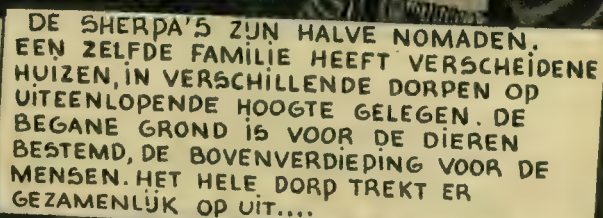 DE SHERPA'S ZIJN HALVE NOMADEN.
EEN ZELFDE FAMILIE HEEFT VERSCHEIDENE
HUIZEN, IN VERSCHILLENDE DORPEN OP
UITEENLOPENDE HOOGTE GELEGEN. DE
BEGANE GROND IS VOOR DE DIEREN
BESTEMD, DE BOVENVERDIEPING VOOR DE
MENSEN. HET HELE DORP TREKT ER
GEZAMENLIJK OP UIT....